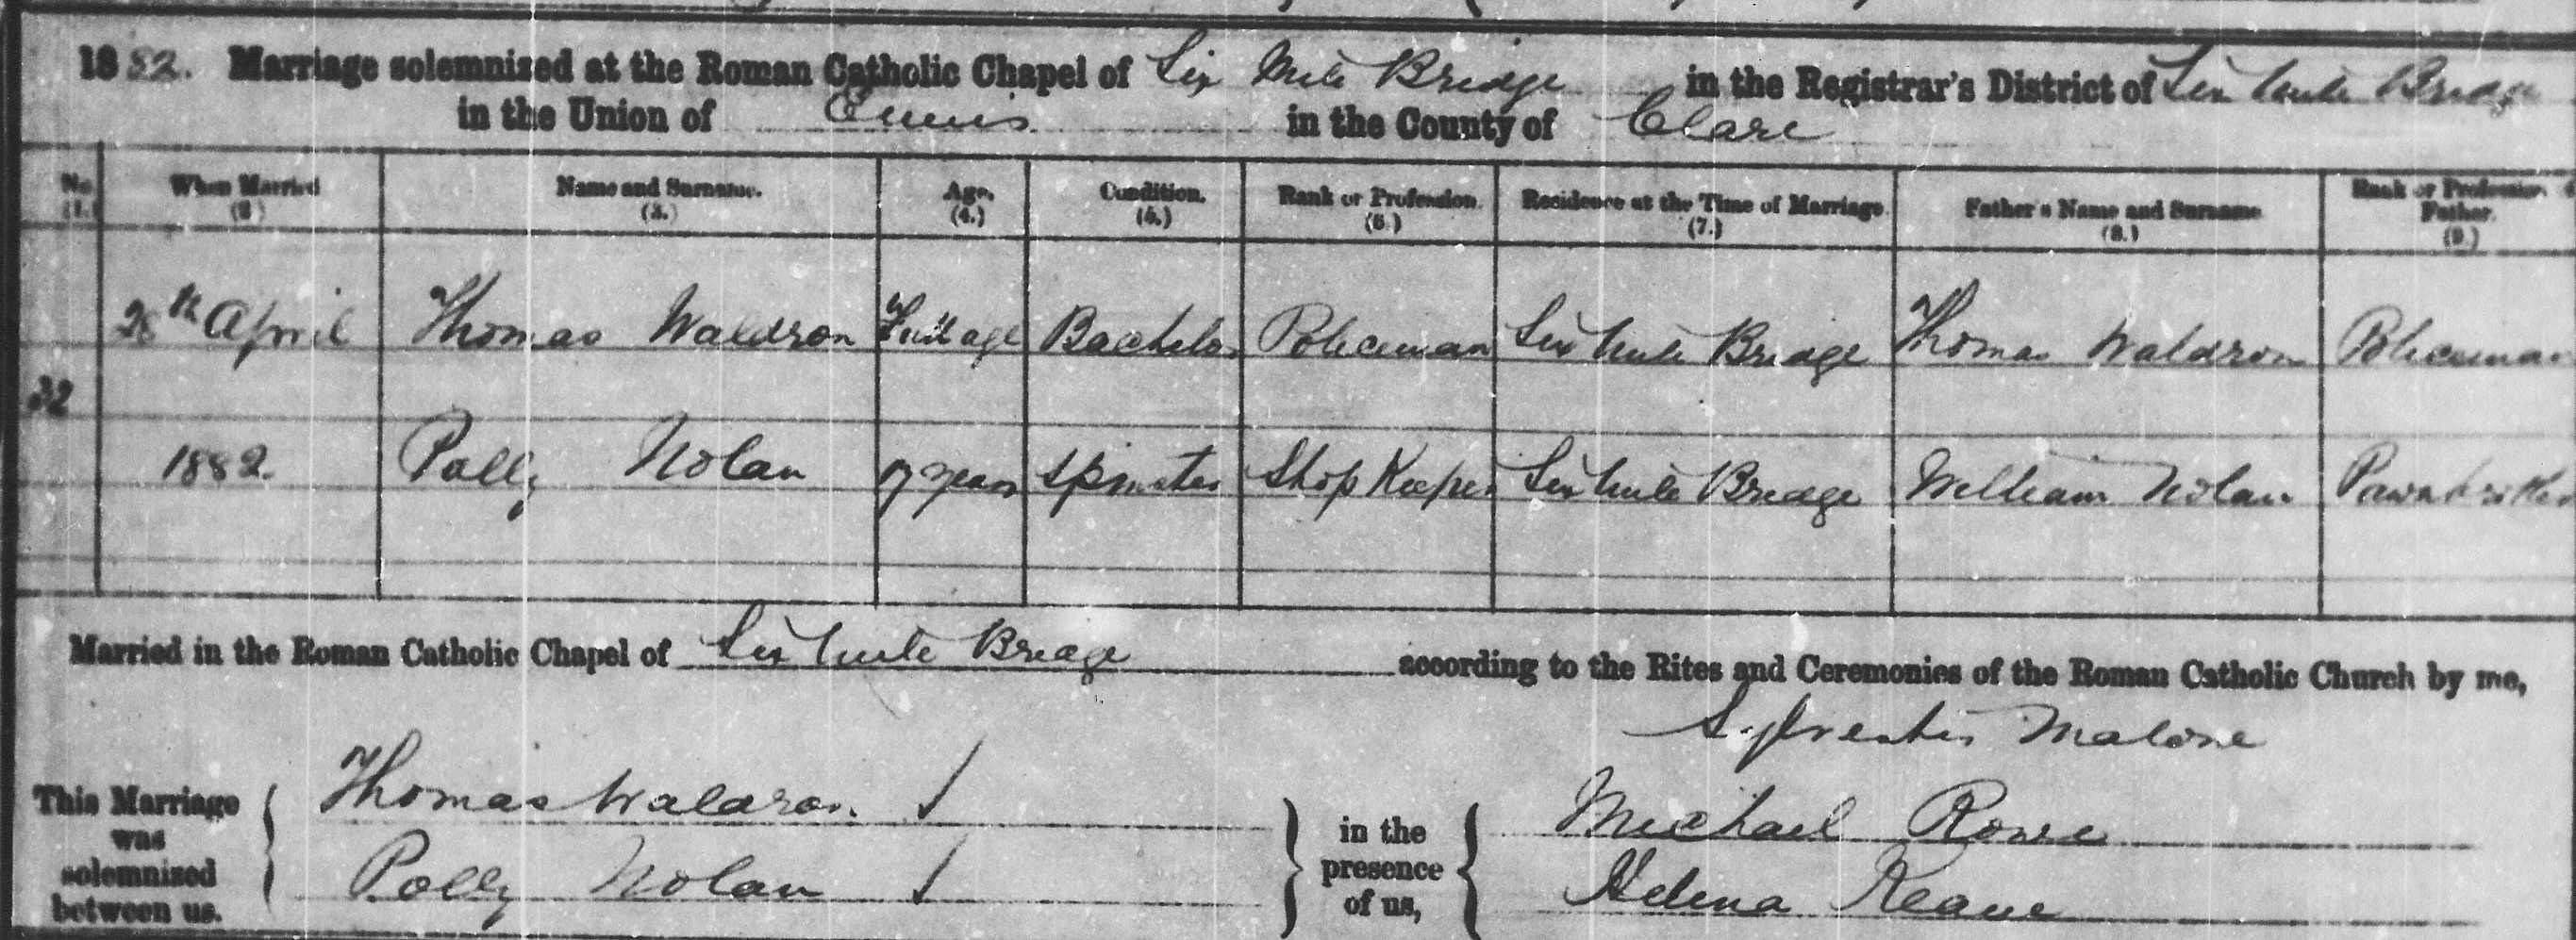 1882. Marriage solemnized at the Roman Catholic Chapel of Six Mile Bridge in the Registrar's District of Six Mile Bridge
in the Union of Ennis in the County of Clare
No. When Married Name and Surname. Age. Condition. Rank or Profession. Residence at the Time of Marriage. Father's Name and Surname. Rank or Profession Father.
(1.) (2.) (3.) (4.) (5.) (6.) (7.) (8.) (9.)
26th April Thomas Waldron Full age Bachelor Policeman Six Mile Bridge Thomas Waldron Policeman
32
1882. Polly Nolan years Spinster Shop Keeper Six Mile Bridge William Nolan Pawnbroker
Married in the Roman Catholic Chapel of Six Mile Bridge according to the Rites and Ceremonies of the Roman Catholic Church by me,
Sylvester Malone
This Marriage was solemnized between us. { Thomas Waldron } in the presence of us, { Michael Rowe
Polly Nolan Helena Keane